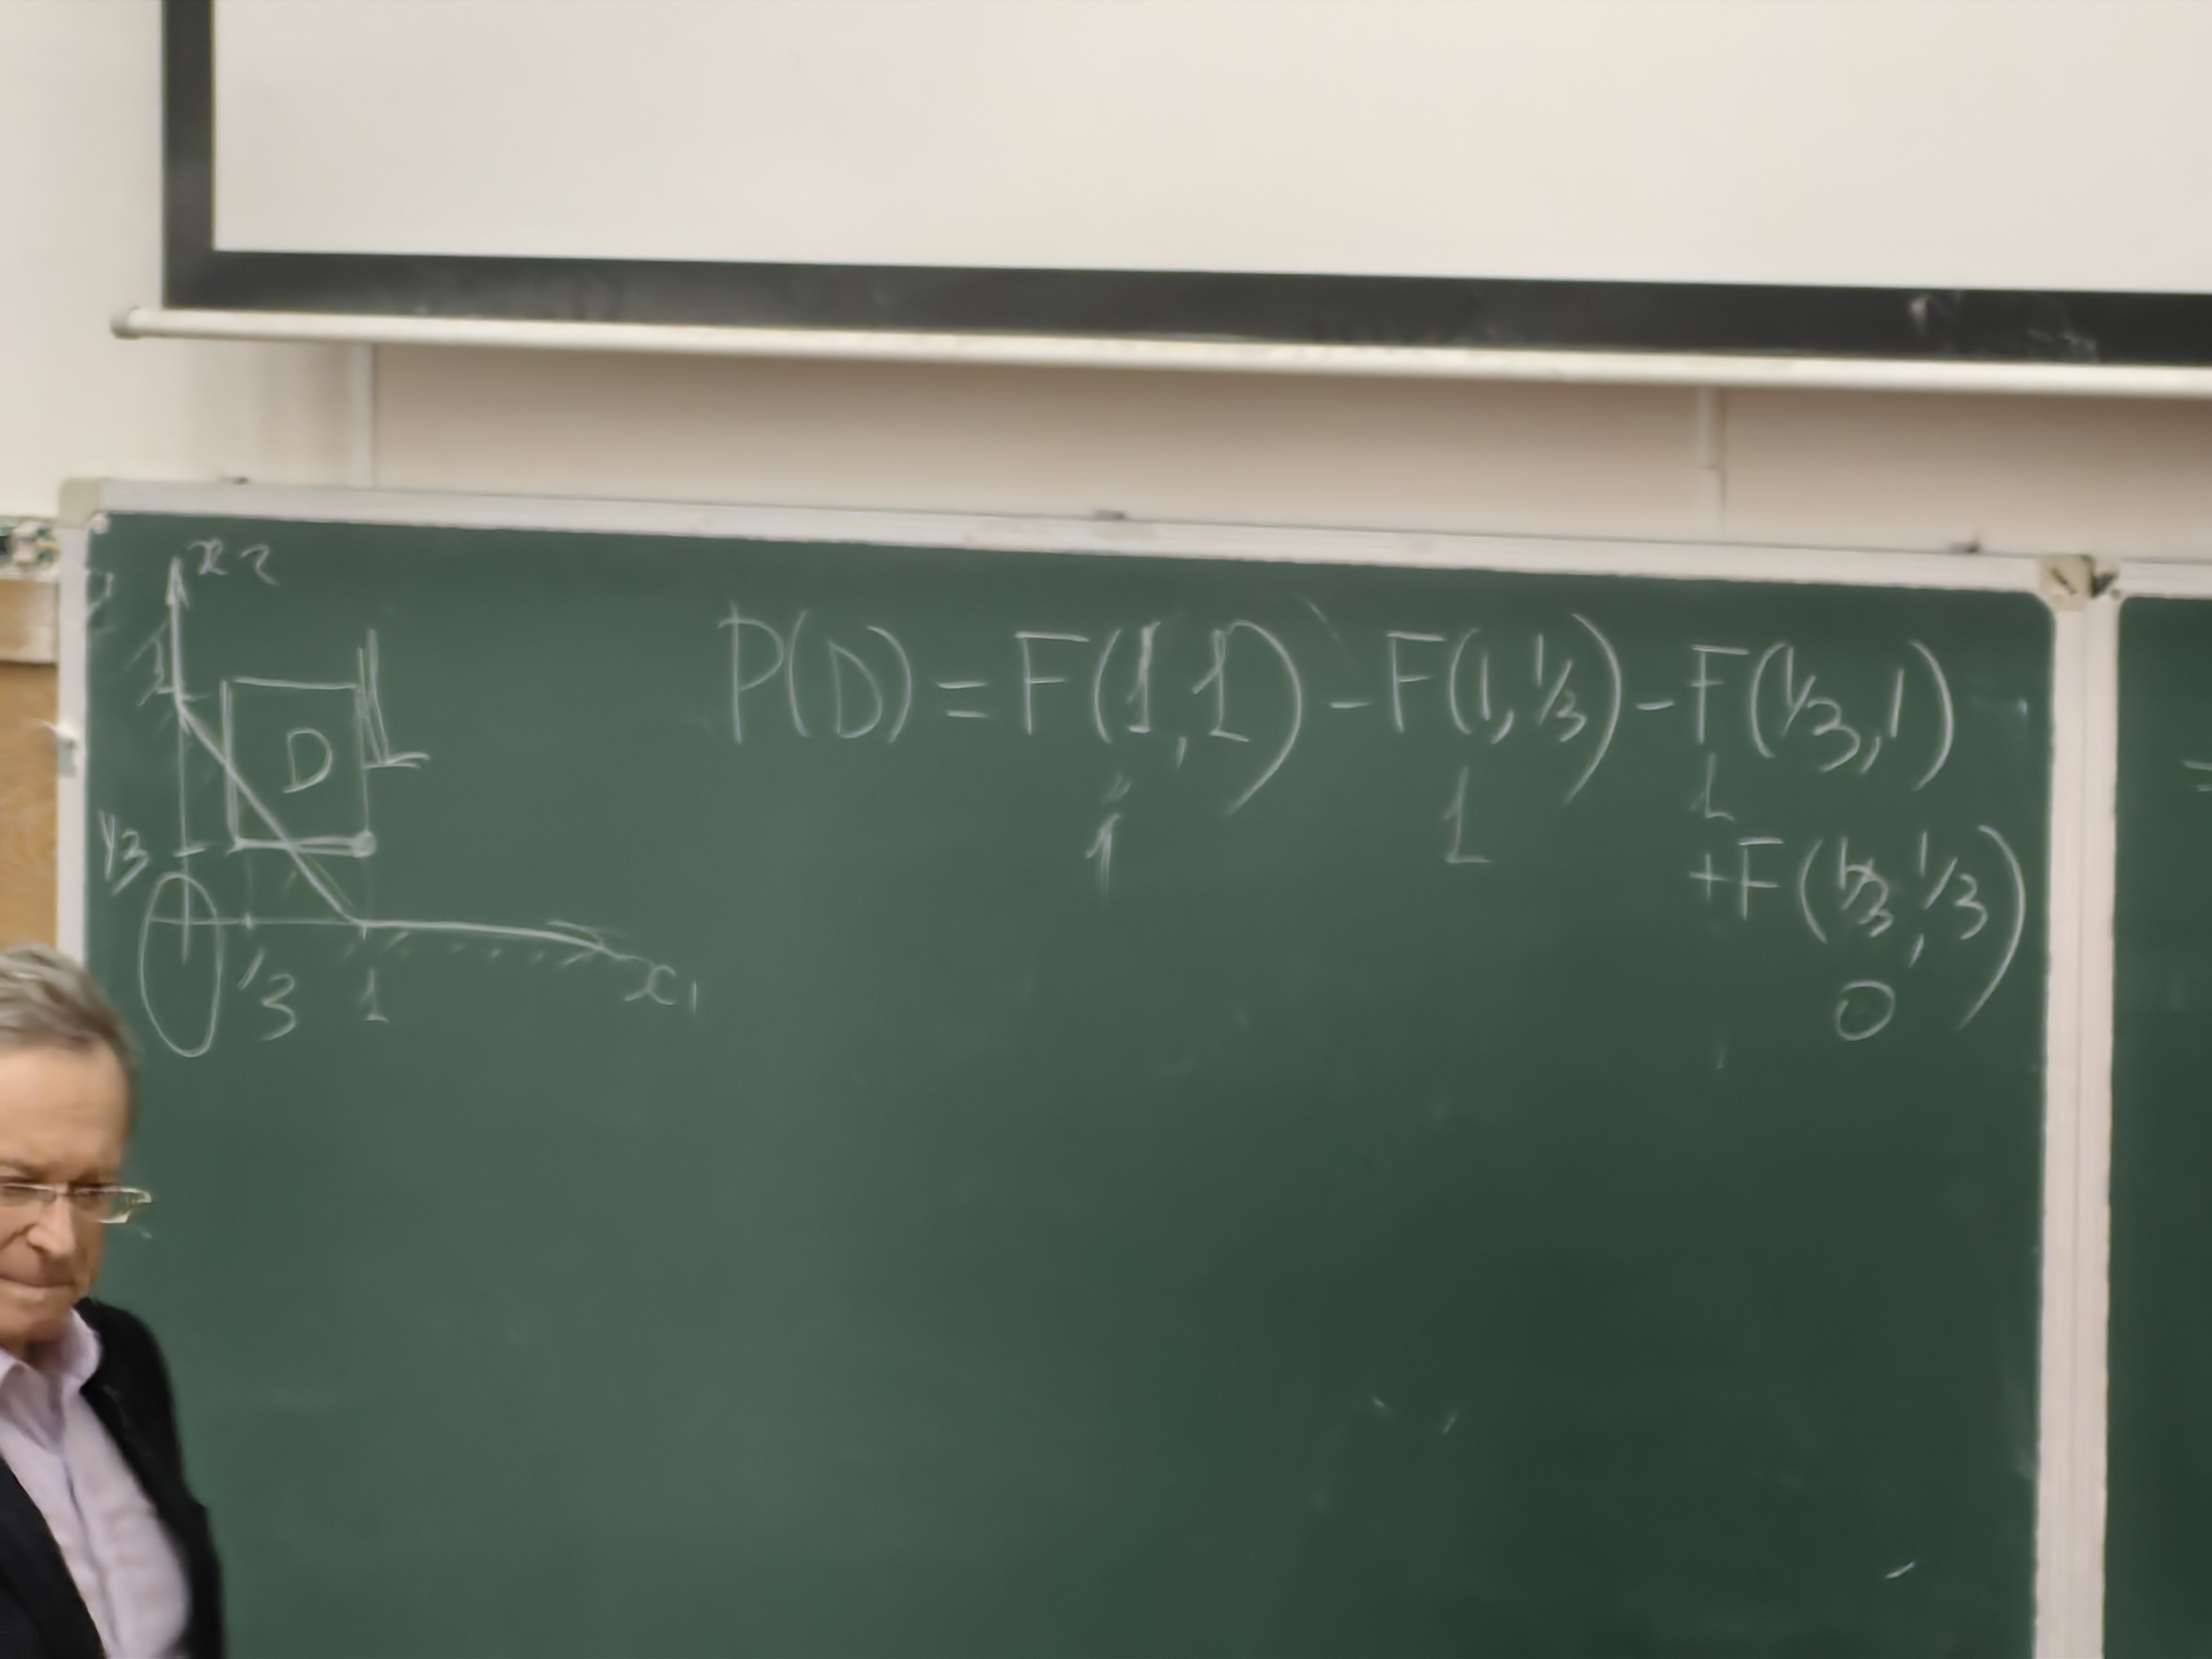 x2
1
D
1/3
1/3 1 x1
P(D) = F(1,1) - F(1,1/3) - F(1/3,1)
1 1 1
+F(1/3,1/3)
0